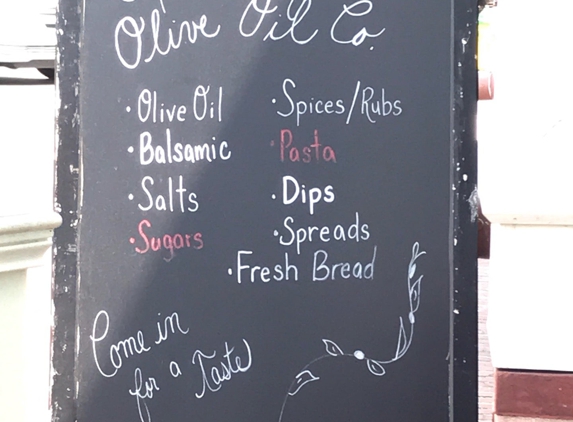 Olive Oil Co.
· Olive Oil
· Balsamic
· Salts
· Sugars
· Spices/Rubs
· Pasta
· Dips
· Spreads
· Fresh Bread
Come in
for a Taste